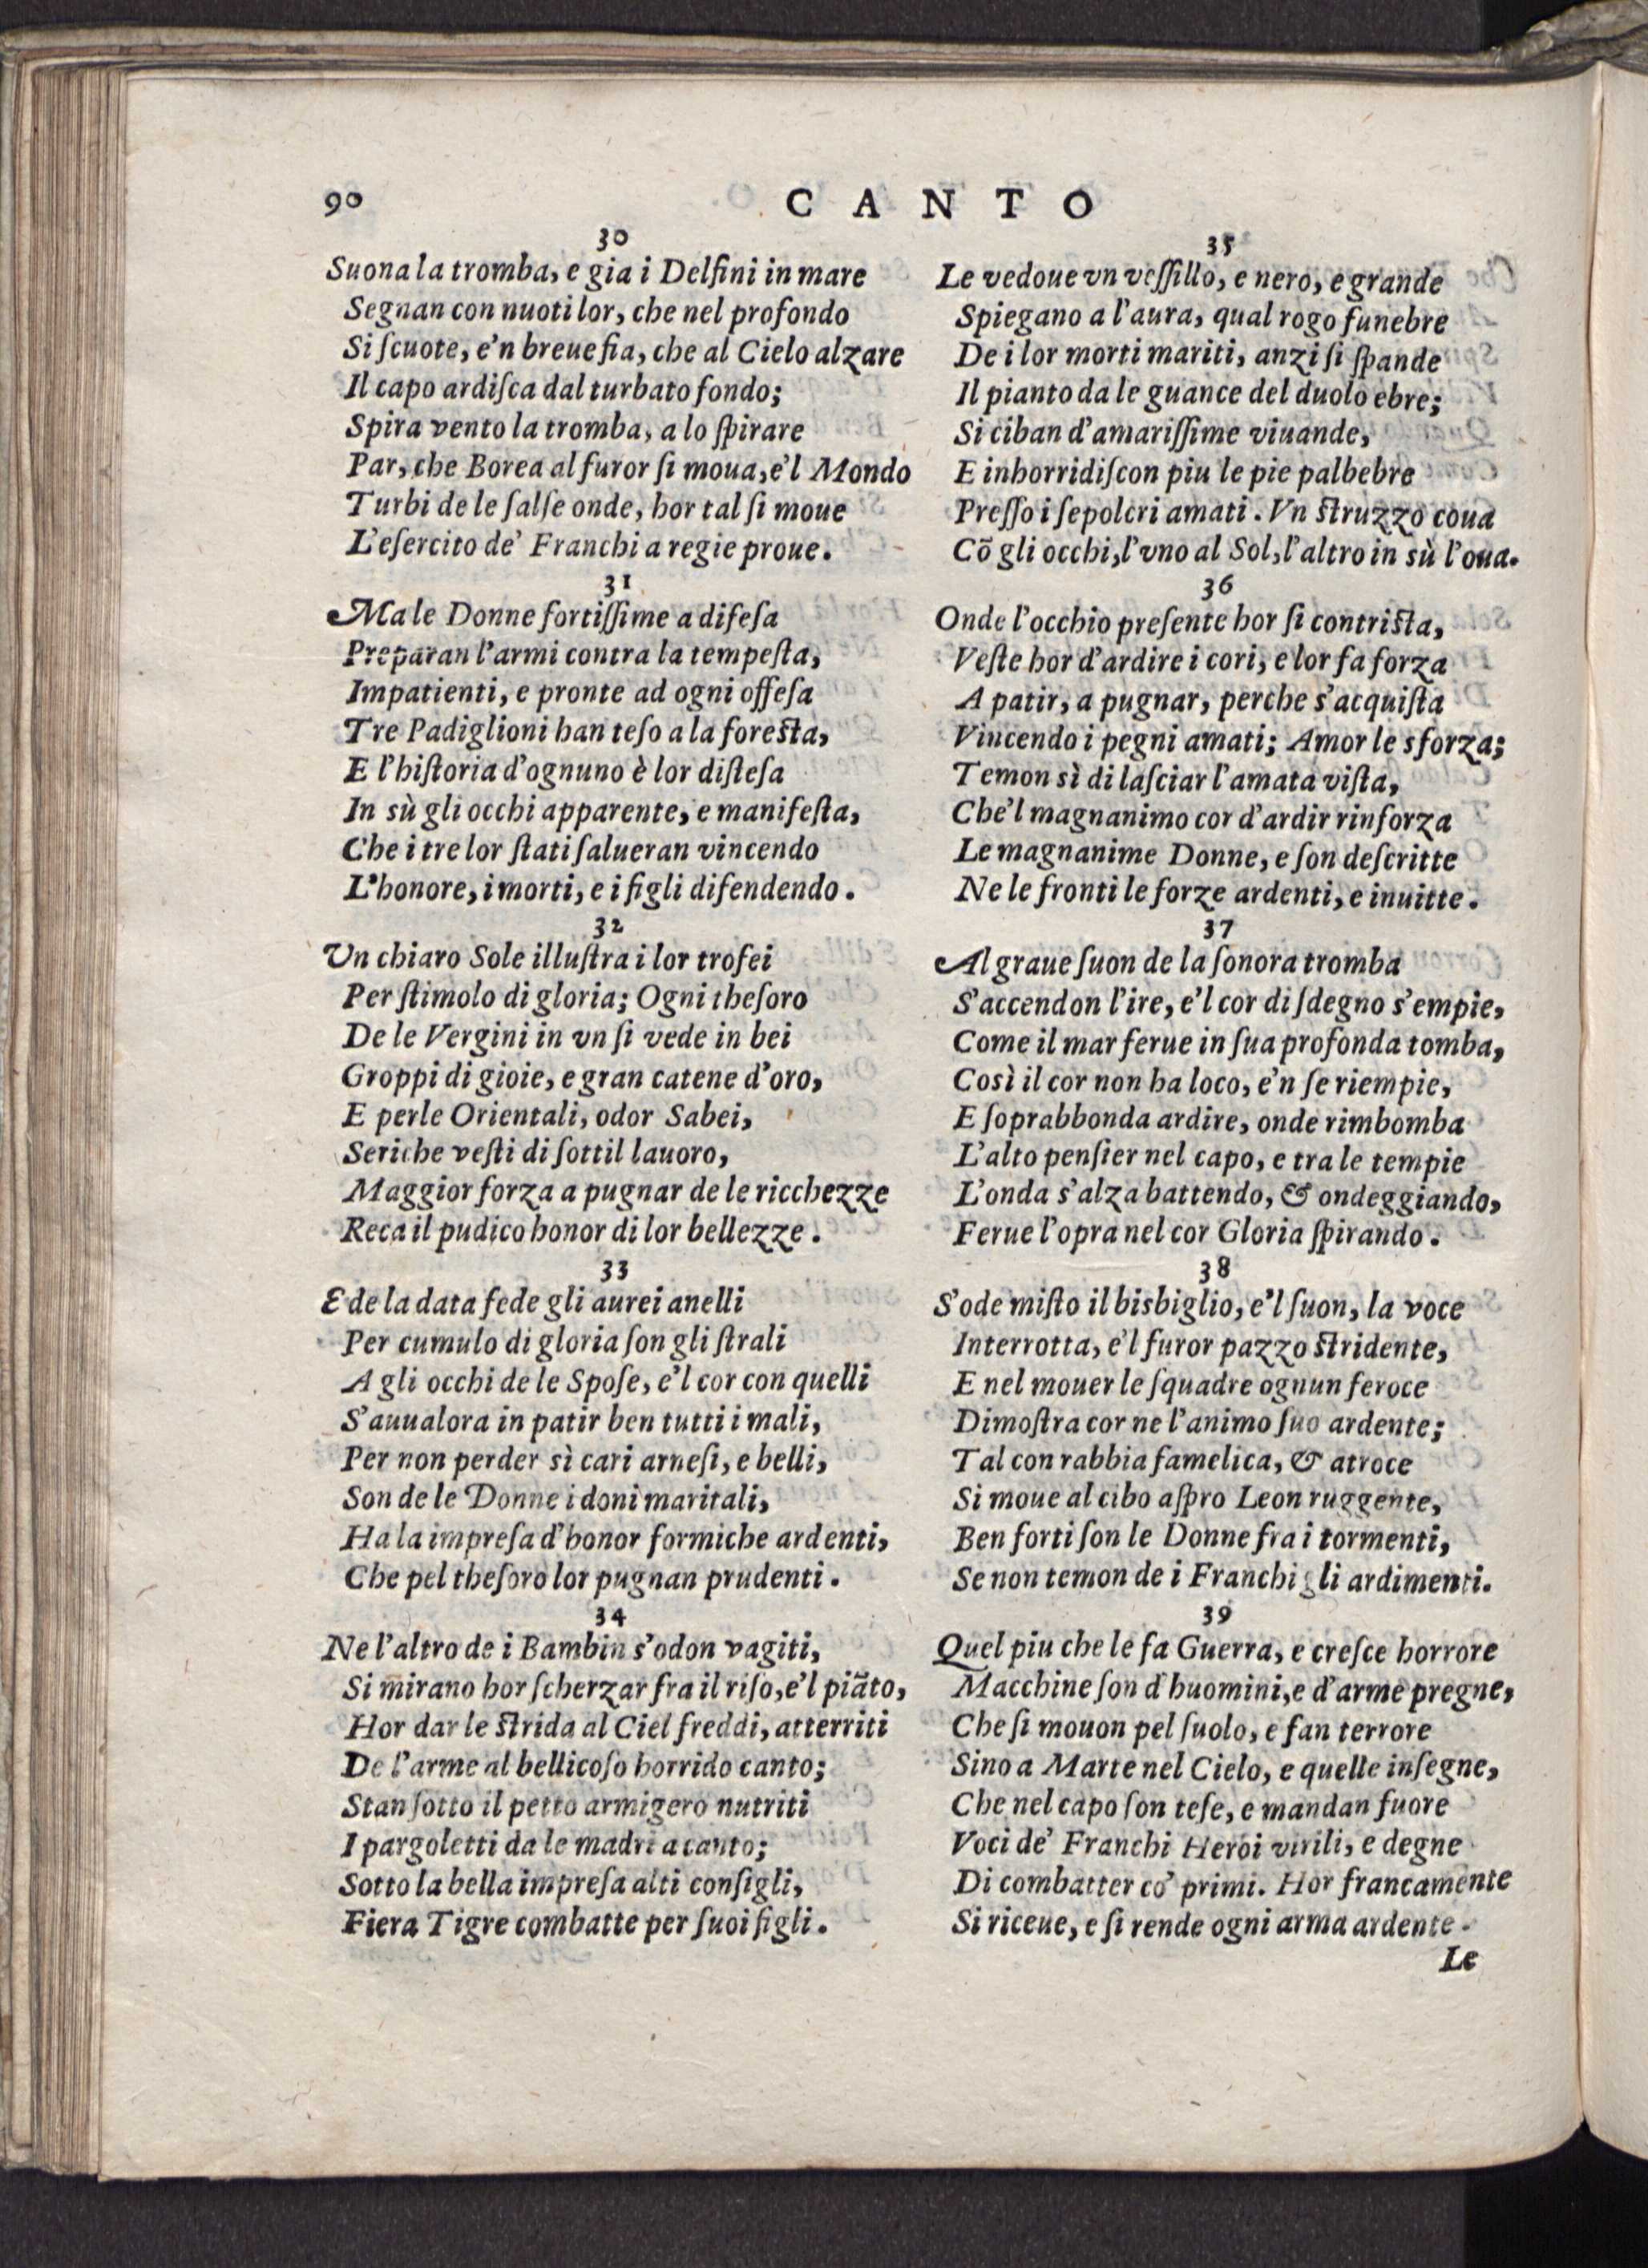 90
CANTO
30
Suona la tromba, e gia i Delfini in mare
Segnan con nuoti lor, che nel profondo
Si ſcuote, e'n breue fia, che al Cielo alzare
Il capo ardiſca dal turbato fondo;
Spira vento la tromba, a lo ſpirare
Par, che Borea al furor ſi moua, e'l Mondo
Turbi de le ſalſe onde, hor tal ſi moue
L'eſercito de' Franchi a regie proue.
31
Ma le Donne fortiſſime a difeſa
Preparan l'armi contra la tempeſta,
Impatienti, e pronte ad ogni offeſa
Tre Padiglioni han teſo a la foreſta,
E l'hiſtoria d'ognuno è lor diſteſa
In sù gli occhi apparente, e manifeſta,
Che i tre lor ſtati ſalueran vincendo
L'honore, i morti, e i figli difendendo.
32
Vn chiaro Sole illuſtra i lor trofei
Per ſtimolo di gloria; Ogni theſoro
De le Vergini in vn ſi vede in bei
Groppi di gioie, e gran catene d'oro,
E perle Orientali, odor Sabei,
Seriche veſti di ſottil lauoro,
Maggior forza a pugnar de le ricchezze
Reca il pudico honor di lor bellezze.
33
E de la data fede gli aurei anelli
Per cumulo di gloria ſon gli ſtrali
A gli occhi de le Spoſe, e'l cor con quelli
S'auualora in patir ben tutti i mali,
Per non perder sì cari arneſi, e belli,
Son de le Donne i doni maritali,
Ha la impreſa d'honor formiche ardenti,
Che pel theſoro lor pugnan prudenti.
34
Ne l'altro de i Bambin s'odon vagiti,
Si mirano hor ſcherzar fra il riſo, e'l piãto,
Hor dar le ſtrida al Ciel freddi, atterriti
De l'arme al bellicoſo horrido canto;
Stan ſotto il petto armigero nutriti
I pargoletti da le madri a canto;
Sotto la bella impreſa alti conſigli,
Fiera Tigre combatte per ſuoi figli.
35
Le vedoue vn veſſillo, e nero, e grande
Spiegano a l'aura, qual rogo funebre
De i lor morti mariti, anzi ſi ſpande
Il pianto da le guance del duolo ebre;
Si ciban d'amariſſime viuande,
E inhorridiſcon piu le pie palbebre
Preſſo i ſepolcri amati. Vn ſtruzzo coua
Cõ gli occhi, l'vno al Sol, l'altro in sù l'oua.
36
Onde l'occhio preſente hor ſi contriſta,
Veſte hor d'ardire i cori, e lor fa forza
A patir, a pugnar, perche s'acquiſta
Vincendo i pegni amati; Amor le sforza;
Temon sì di laſciar l'amata viſta,
Che'l magnanimo cor d'ardir rinforza
Le magnanime Donne, e ſon deſcritte
Ne le fronti le forze ardenti, e inuitte.
37
Al graue ſuon de la ſonora tromba
S'accendon l'ire, e'l cor di ſdegno s'empie,
Come il mar ferue in ſua profonda tomba,
Così il cor non ha loco, e'n ſe riempie,
E ſoprabbonda ardire, onde rimbomba
L'alto penſier nel capo, e tra le tempie
L'onda s'alza battendo, & ondeggiando,
Ferue l'opra nel cor Gloria ſpirando.
38
S'ode miſto il bisbiglio, e'l ſuon, la voce
Interrotta, e'l furor pazzo ſtridente,
E nel mouer le ſquadre ognun feroce
Dimoſtra cor ne l'animo ſuo ardente;
Tal con rabbia famelica, & atroce
Si moue al cibo aſpro Leon ruggente,
Ben forti ſon le Donne fra i tormenti,
Se non temon de i Franchi gli ardimenti.
39
Quel piu che le fa Guerra, e creſce horrore
Macchine ſon d'huomini, e d'arme pregne,
Che ſi mouon pel ſuolo, e fan terrore
Sino a Marte nel Cielo, e quelle inſegne,
Che nel capo ſon teſe, e mandan fuore
Voci de' Franchi Heroi virili, e degne
Di combatter co' primi. Hor francamente
Si riceue, e ſi rende ogni arma ardente.
Le